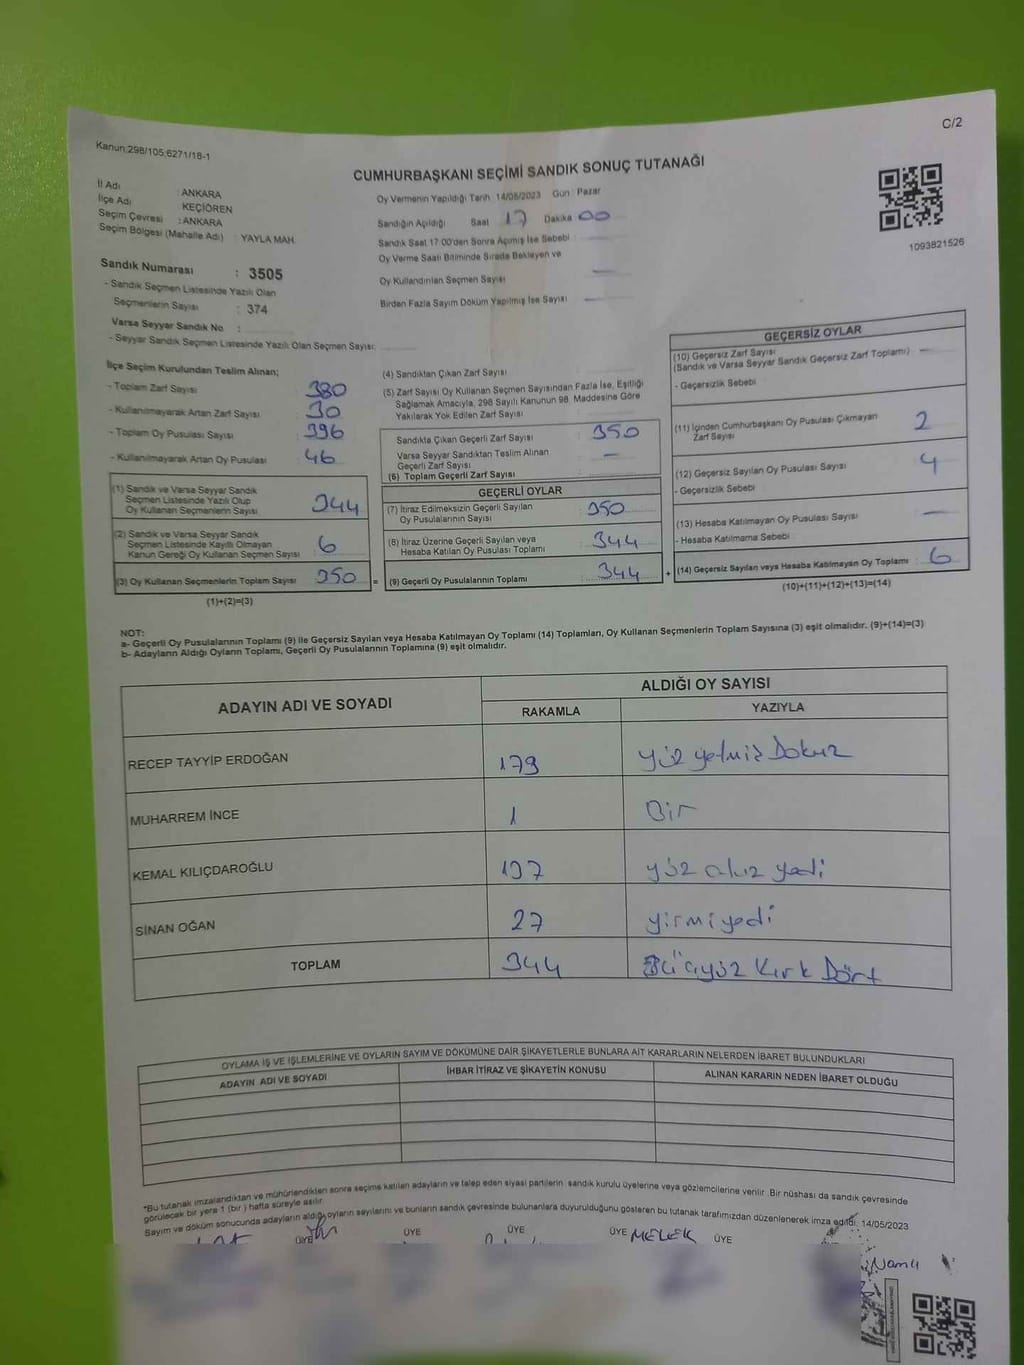 C/2
Kanun:298/105;6271/18-1
CUMHURBAŞKANI SEÇİMİ SANDIK SONUÇ TUTANAĞI
İl Adı : ANKARA
İlçe Adı : KEÇİÖREN
Seçim Çevresi : ANKARA
Seçim Bölgesi (Mahalle Adı) : YAYLA MAH.
Sandık Numarası : 3505
- Sandık Seçmen Listesinde Yazılı Olan
Seçmenlerin Sayısı : 374
Varsa Seyyar Sandık No :
- Seyyar Sandık Seçmen Listesinde Yazılı Olan Seçmen Sayısı:
Oy Vermenin Yapıldığı Tarih 14/05/2023 Gün : Pazar
Sandığın Açıldığı Saat 17 Dakika 00
Sandık Saat 17.00'den Sonra Açımış İse Sebebi —
Oy Verme Saati Bitiminde Sırada Bekleyen ve
Oy Kullandırılan Seçmen Sayısı —
Birden Fazla Sayım Döküm Yapılmış İse Sayısı —
1093821526
İlçe Seçim Kurulundan Teslim Alınan;
- Toplam Zarf Sayısı : 380
- Kullanılmayarak Artan Zarf Sayısı : 30
- Toplam Oy Pusulası Sayısı : 396
- Kullanılmayarak Artan Oy Pusulası : 46
(1) Sandık ve Varsa Seyyar Sandık
Seçmen Listesinde Yazılı Olup
Oy Kullanan Seçmenlerin Sayısı : 344
(2) Sandık ve Varsa Seyyar Sandık
Seçmen Listesinde Kayıtlı Olmayan
Kanun Gereği Oy Kullanan Seçmen Sayısı : 6
(3) Oy Kullanan Seçmenlerin Toplam Sayısı : 350 =
(1)+(2)=(3)
(4) Sandıktan Çıkan Zarf Sayısı :
(5) Zarf Sayısı Oy Kullanan Seçmen Sayısından Fazla İse, Eşitliği
Sağlamak Amacıyla, 298 Sayılı Kanunun 98. Maddesine Göre
Yakılarak Yok Edilen Zarf Sayısı :
Sandıkta Çıkan Geçerli Zarf Sayısı : 350
Varsa Seyyar Sandıktan Teslim Alınan
Geçerli Zarf Sayısı : —
(6) Toplam Geçerli Zarf Sayısı :
GEÇERLİ OYLAR
(7) İtiraz Edilmeksizin Geçerli Sayılan
Oy Pusulalarının Sayısı : 350
(8) İtiraz Üzerine Geçerli Sayılan veya
Hesaba Katılan Oy Pusulası Toplamı : 344
(9) Geçerli Oy Pusulalarının Toplamı : 344 +
GEÇERSİZ OYLAR
(10) Geçersiz Zarf Sayısı
(Sandık ve Varsa Seyyar Sandık Geçersiz Zarf Toplamı) : —
- Geçersizlik Sebebi
(11) İçinden Cumhurbaşkanı Oy Pusulası Çıkmayan
Zarf Sayısı : 2
(12) Geçersiz Sayılan Oy Pusulası Sayısı : 4
- Geçersizlik Sebebi
(13) Hesaba Katılmayan Oy Pusulası Sayısı : —
- Hesaba Katılmama Sebebi
(14) Geçersiz Sayılan veya Hesaba Katılmayan Oy Toplamı : 6
(10)+(11)+(12)+(13)=(14)
NOT:
a- Geçerli Oy Pusulalarının Toplamı (9) ile Geçersiz Sayılan veya Hesaba Katılmayan Oy Toplamı (14) Toplamları, Oy Kullanan Seçmenlerin Toplam Sayısına (3) eşit olmalıdır. (9)+(14)=(3)
b- Adayların Aldığı Oyların Toplamı, Geçerli Oy Pusulalarının Toplamına (9) eşit olmalıdır.
ADAYIN ADI VE SOYADI ALDIĞI OY SAYISI
RAKAMLA YAZIYLA
RECEP TAYYİP ERDOĞAN 179 yüz yetmiş Dokuz
MUHARREM İNCE 1 Bir
KEMAL KILIÇDAROĞLU 137 yüz otuz yedi
SİNAN OĞAN 27 yirmi yedi
TOPLAM 344 Üçyüz Kırk Dört
OYLAMA İŞ VE İŞLEMLERİNE VE OYLARIN SAYIM VE DÖKÜMÜNE DAİR ŞİKAYETLERLE BUNLARA AİT KARARLARIN NELERDEN İBARET BULUNDUKLARI
ADAYIN ADI VE SOYADI İHBAR İTİRAZ VE ŞİKAYETİN KONUSU ALINAN KARARIN NEDEN İBARET OLDUĞU
*Bu tutanak imzalandıktan ve mühürlendikten sonra seçime katılan adayların ve talep eden siyasi partilerin sandık kurulu üyelerine veya gözlemcilerine verilir. Bir nüshası da sandık çevresinde
görülecek bir yere 1 (bir) hafta süreyle asılır.
Sayım ve döküm sonucunda adayların aldığı oyların sayılarını ve bunların sandık çevresinde bulunanlara duyurulduğunu gösteren bu tutanak tarafımızdan düzenlenerek imza edildi. 14/05/2023
ÜYE ÜYE ÜYE ÜYE MELEK ÜYE